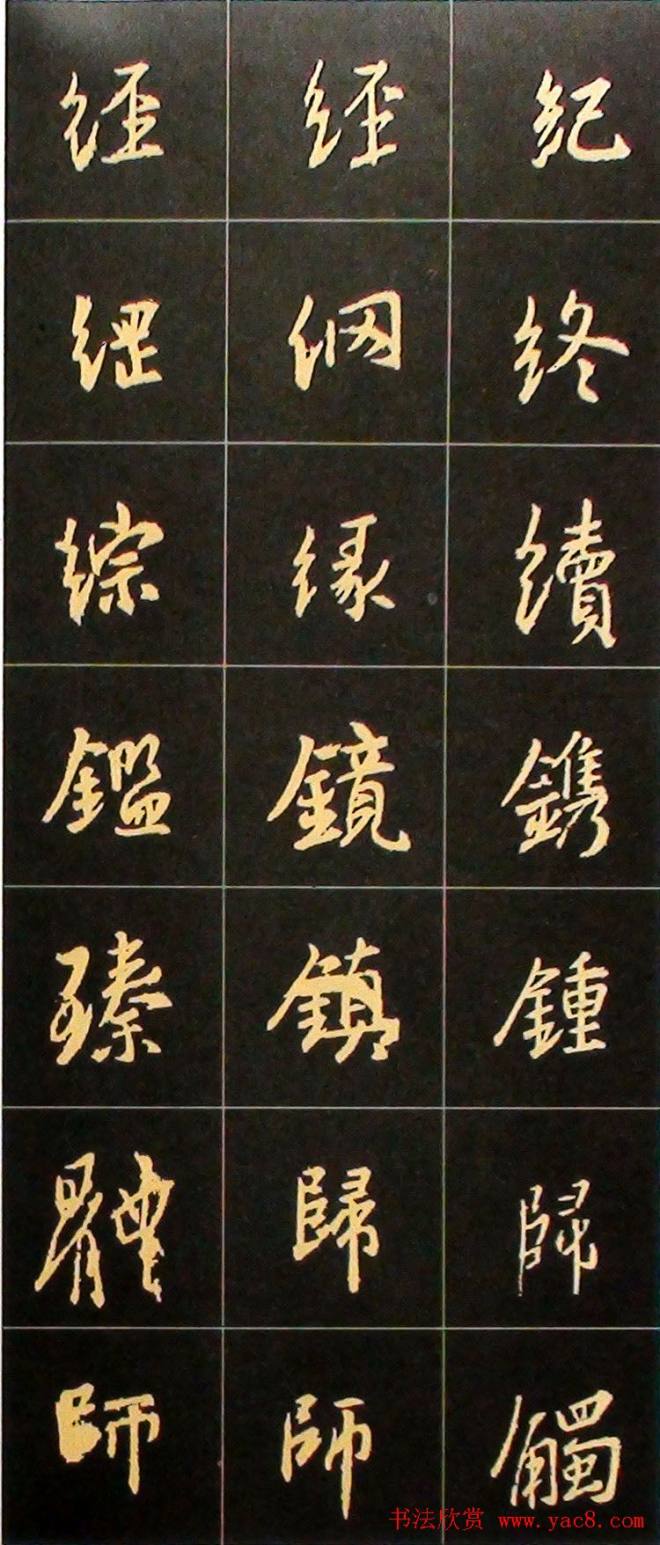 紀終續鐫鍾歸觸
經網緣鏡鎮歸師
經綱綜鑑臻體師
书法欣赏 www.yac8.com